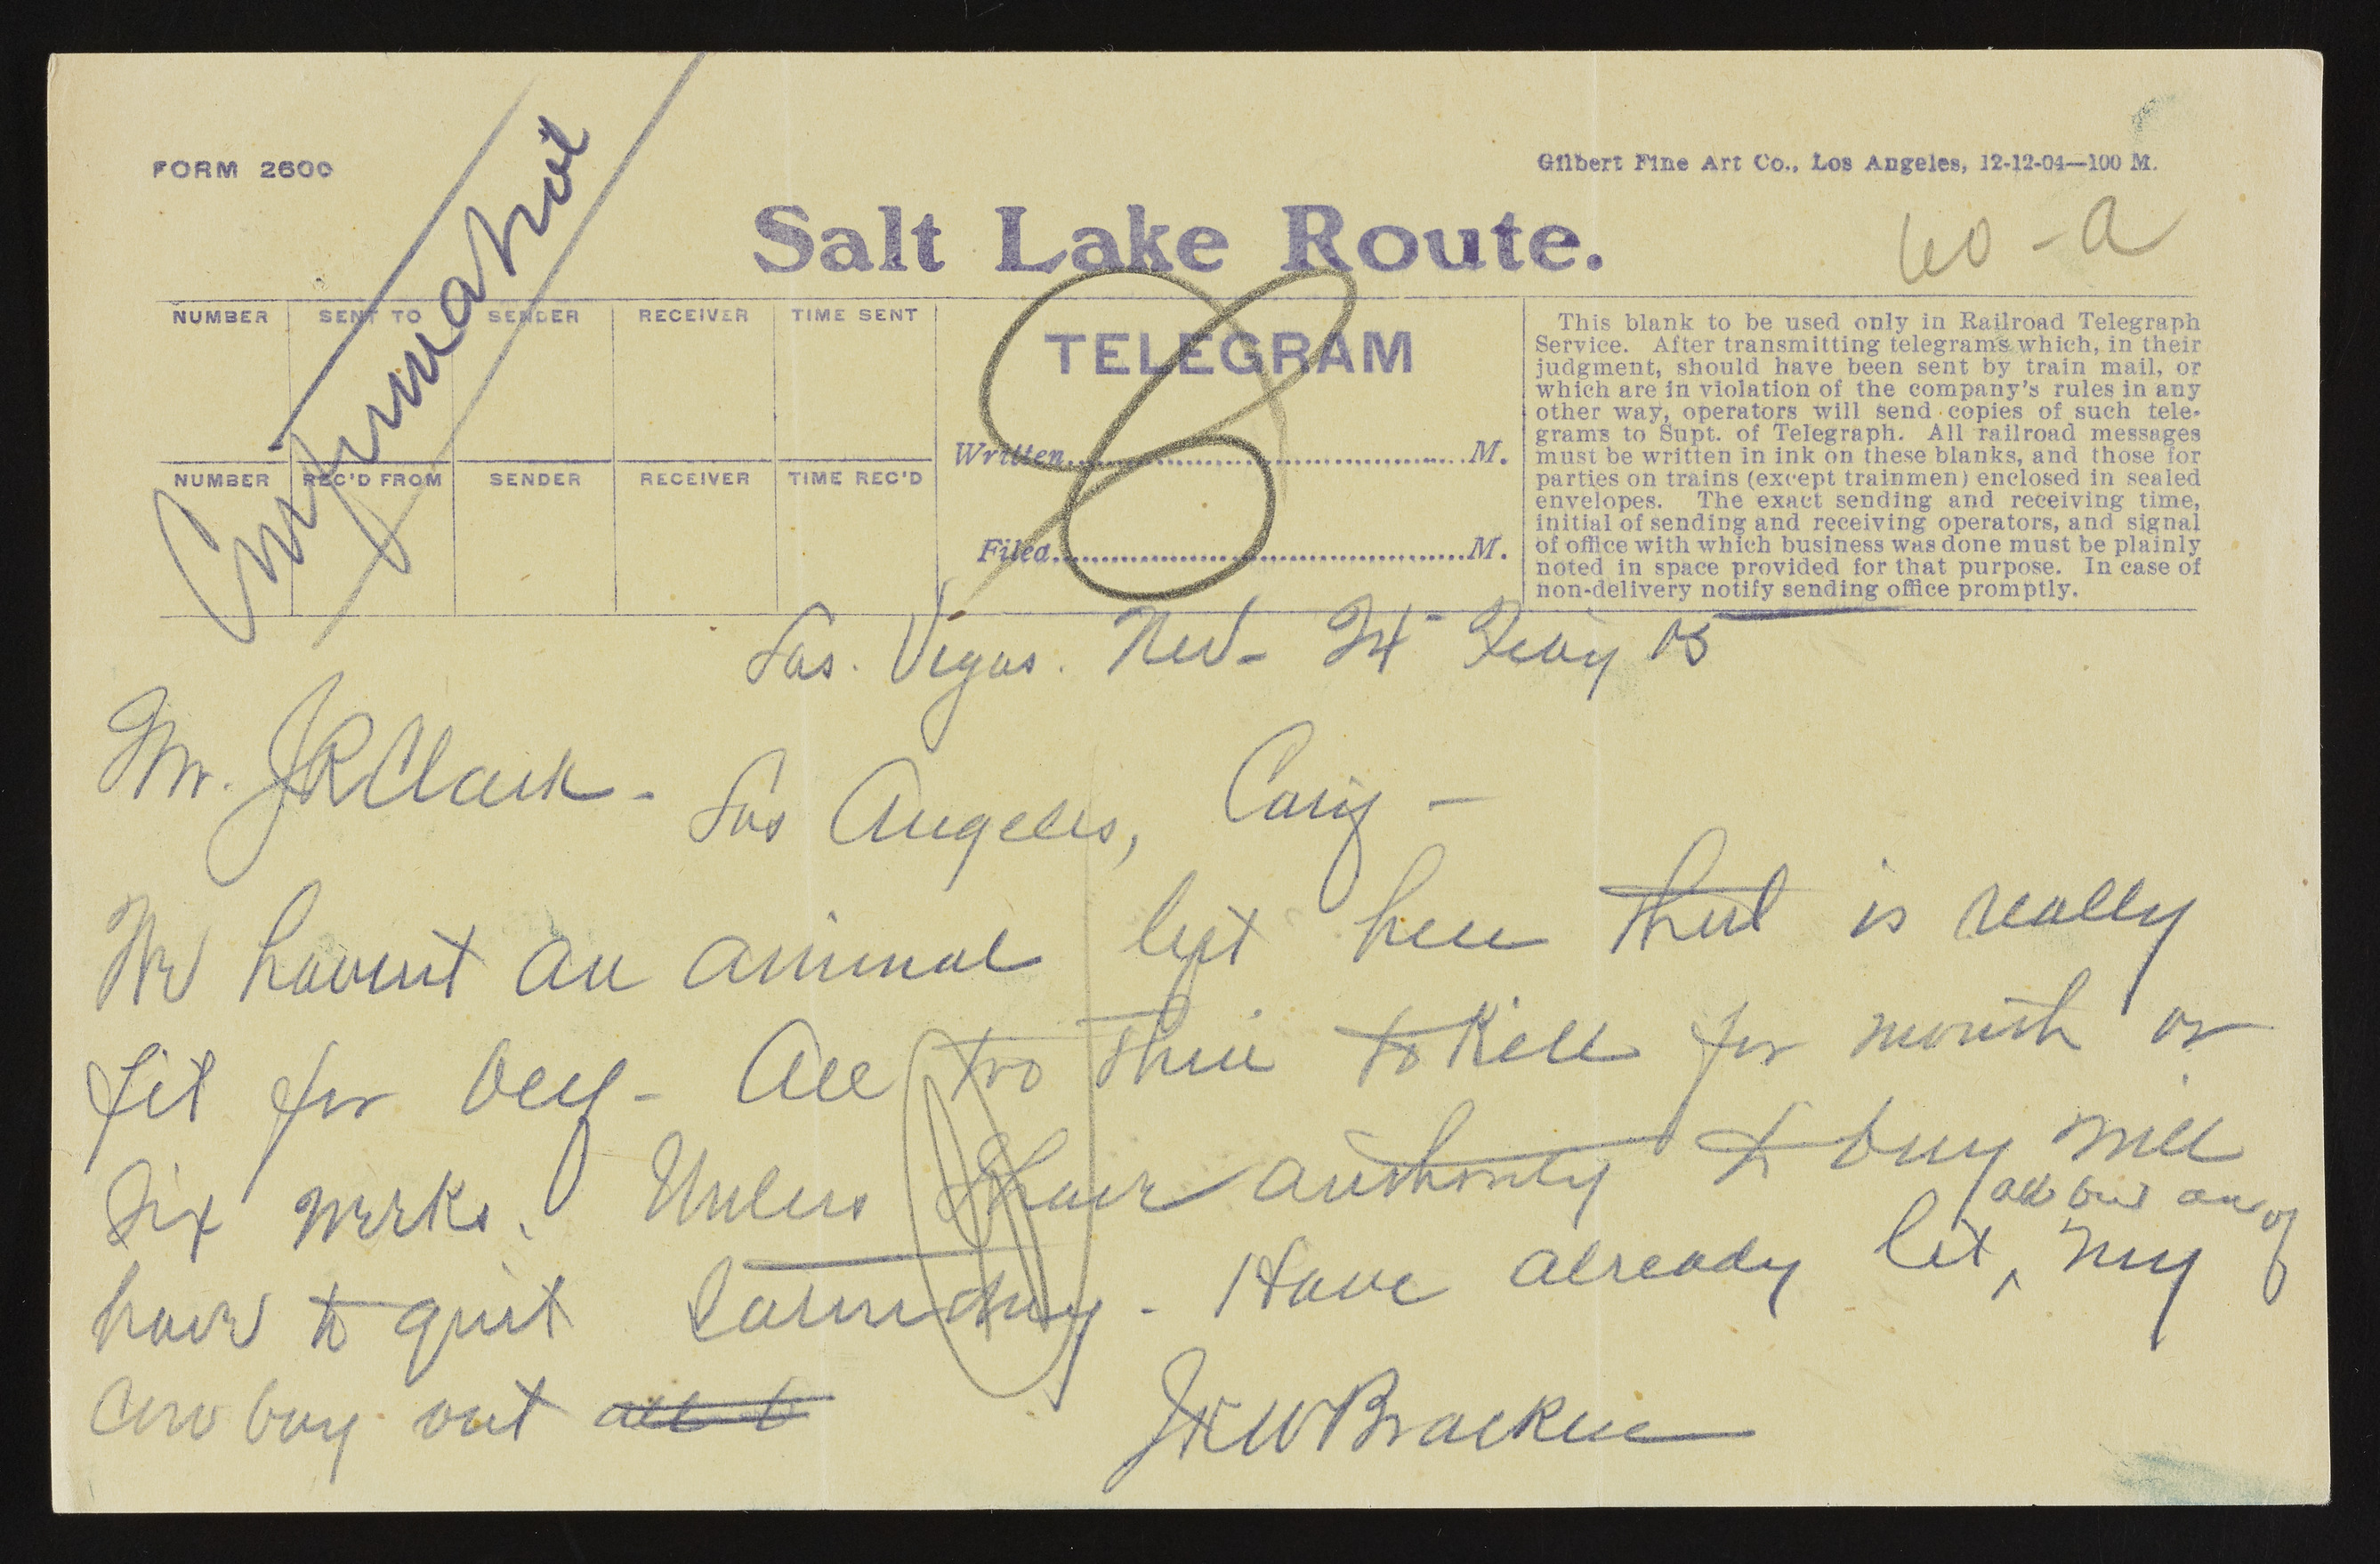 FORM 2600
Gilbert Fine Art Co., Los Angeles, 12-12-04—100 M.
Confirmation
60-a
Salt Lake Route.
NUMBER SENT TO SENDER RECEIVER TIME SENT
NUMBER REC'D FROM SENDER RECEIVER TIME REC'D
TELEGRAM
Written M.
Filed M.
This blank to be used only in Railroad Telegraph
Service. After transmitting telegrams which, in their
judgment, should have been sent by train mail, or
which are in violation of the company's rules in any
other way, operators will send copies of such tele-
grams to Supt. of Telegraph. All railroad messages
must be written in ink on these blanks, and those for
parties on trains (except trainmen) enclosed in sealed
envelopes. The exact sending and receiving time,
initial of sending and receiving operators, and signal
of office with which business was done must be plainly
noted in space provided for that purpose. In case of
non-delivery notify sending office promptly.
Las. Vegas. Nev- 24 05
Mr. JRClark-
Los Angeles,
We havent an animal left here that is really
fit for beef- All too thin to kill for month or
six weeks. Unless I have authority to buy will
have to quit Saturday. Have already let all but one of my
Cow boy out all b
WBracken